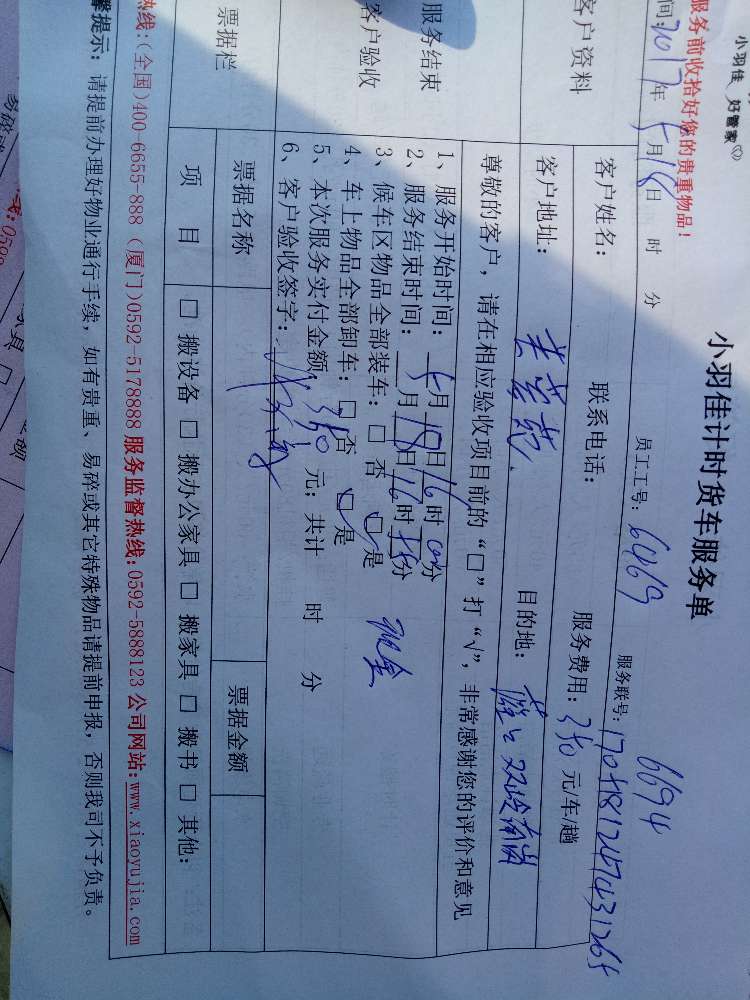 小羽佳 好管家
小羽佳计时货车服务单
服务前收拾好您的贵重物品！
员工工号：6469
服务联号：
6694
间：2017年5月18日 时 分
客户资料
客户姓名：
联系电话：
服务费用：350元/车/趟
客户地址：
目的地：
尊敬的客户，请在相应验收项目前的“□”打“√”，非常感谢您的评价和意见
服务结束
客户验收
1、服务开始时间：5月18日16时00分
2、服务结束时间： 月18日16时 分
3、候车区物品全部装车：□否 □是
现金
4、车上物品全部卸车：□否 □是
5、本次服务实付金额350元；共计 时 分
6、客户验收签字：
票据栏
票据名称
票据金额
项 目
□搬设备 □搬办公家具 □搬家具 □搬书 □其他：
热线：(全国)400-6655-888 (厦门)0592-5178888 服务监督热线：0592-5888123 公司网站：www.xiaoyujia.com
馨提示：请提前办理好物业通行手续，如有贵重、易碎或其它特殊物品请提前申报，否则我司不予负责。